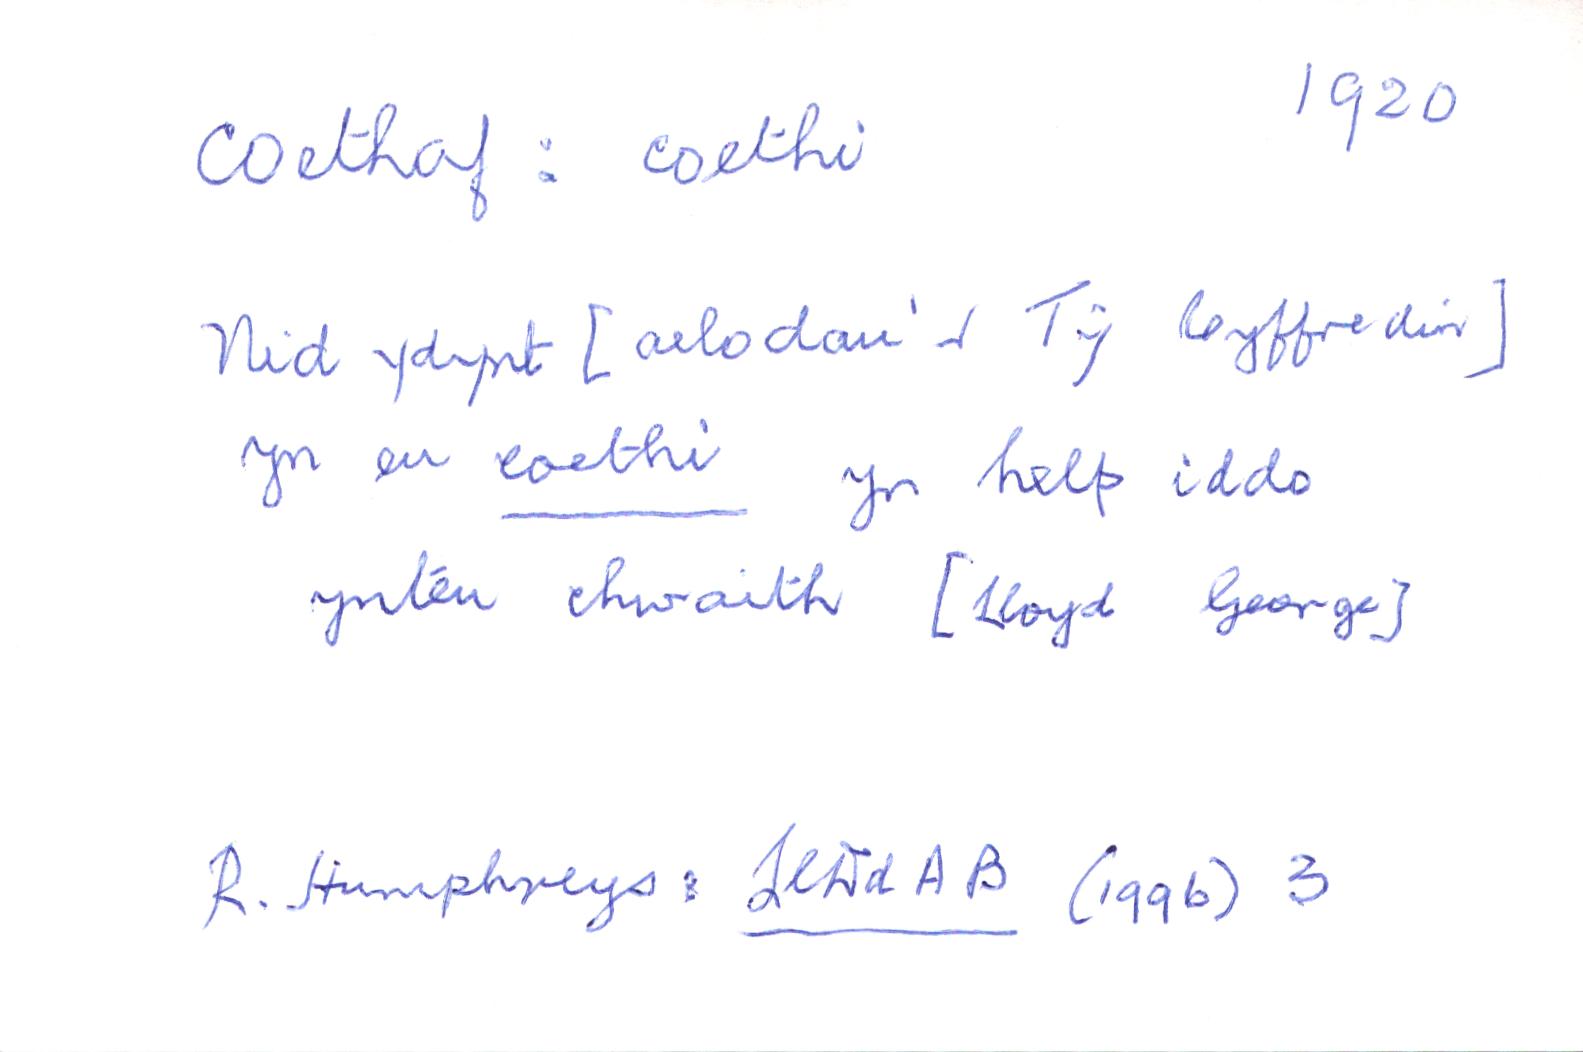 1920
coethaf : coethi
Nid ydynt [aelodau'r Tŷ Cyffredin]
yn eu coethi yn help iddo
yntéu chwaith [Lloyd George]
R. Humphreys: (1996) 3